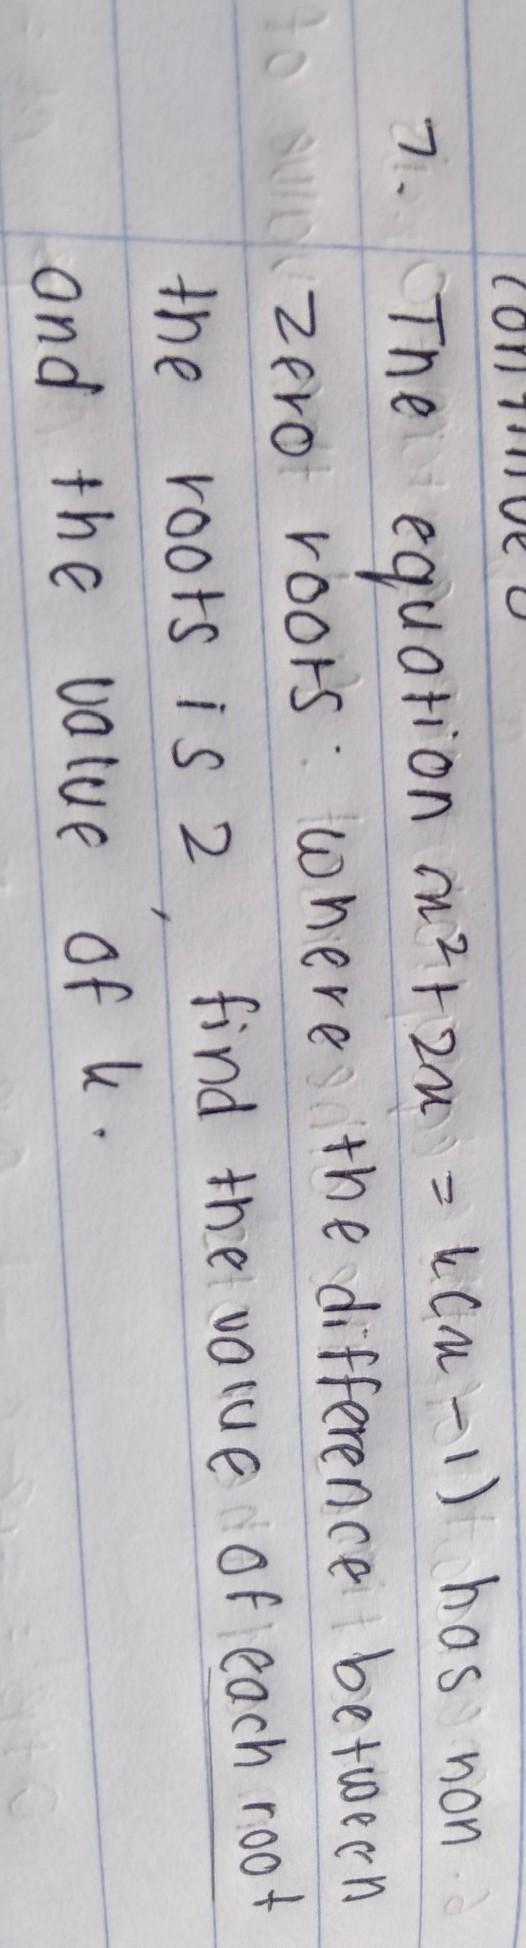 7. The equation x² + 2x = k(x - 1) has non
zero roots. where the difference between
the roots is 2, find the value of each root
and the value of k.